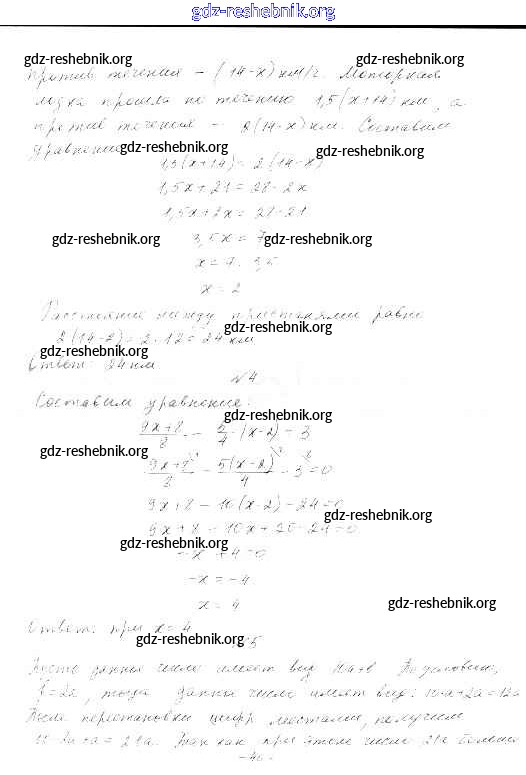 gdz-reshebnik.org
gdz-reshebnik.org gdz-reshebnik.org
против течения - (14-x) км/ч. Моторная
лодка прошла по течению 1,5(x+14) км, а
против течения - 2(14-x) км. Составим
gdz-reshebnik.org gdz-reshebnik.org
уравнение
1,5(x+14) = 2(14-x)
1,5x+21=28-2x
1,5x+2x=28-21
gdz-reshebnik.org gdz-reshebnik.org
3,5x = 7
x = 7 : 3,5
x = 2
Расстояние между пристанями равно
gdz-reshebnik.org
2(14-2)=2·12=24 км
gdz-reshebnik.org
Ответ: 24 км
№4
Составим уравнение:
gdz-reshebnik.org
(9x+8)/8 - 5/4 · (x-2) = 3
gdz-reshebnik.org
(9x+8)/8 - 5(x-2)/4 - 3 = 0
9x+8-10(x-2)-24=0
gdz-reshebnik.org
9x+8-10x+20-24=0
gdz-reshebnik.org
-x+4=0
-x=-4
x=4
gdz-reshebnik.org
Ответ: при x=4
gdz-reshebnik.org
№5
Пусть данное число имеет вид 10a+b По условию,
b=2a, тогда данное число имеет вид: 10a+2a=12a
После перестановки цифр местами, получим
10·2a+a=21a. Так как при этом число 21a больше
-46-